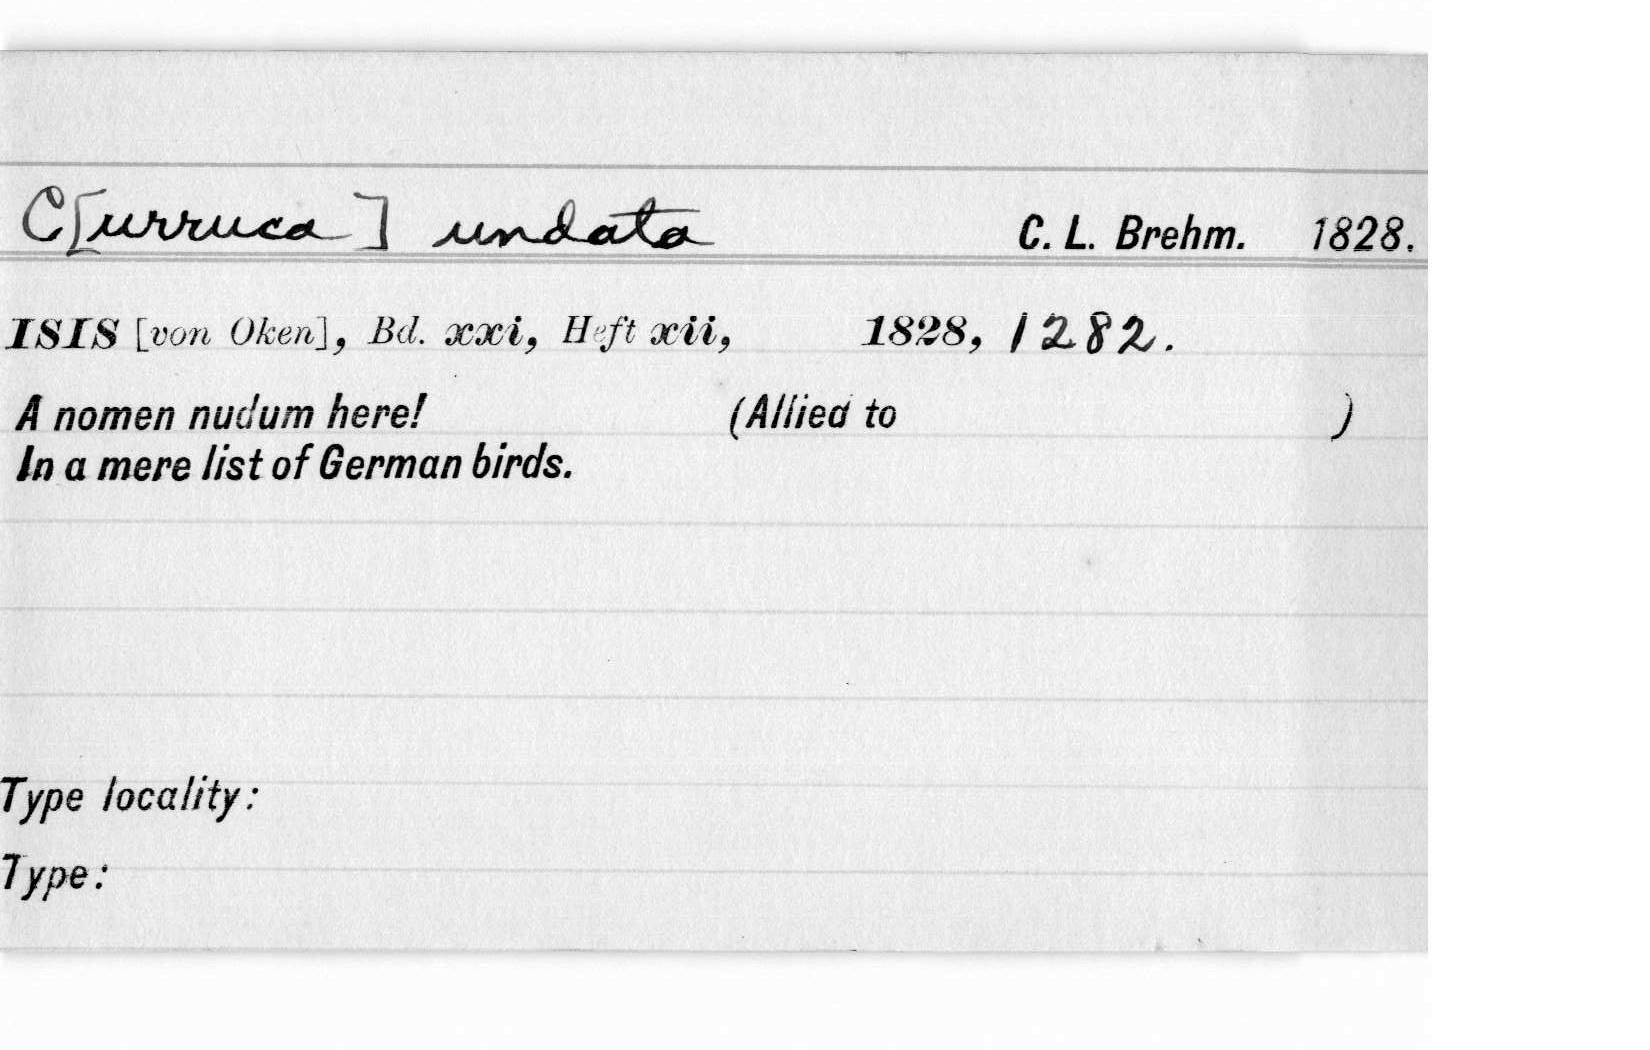 C[urruca] undata C. L. Brehm. 1828.
ISIS [von Oken], Bd. xxi, Heft xii, 1828, 1282.
A nomen nudum here! (Allied to )
In a mere list of German birds.
Type locality:
Type: